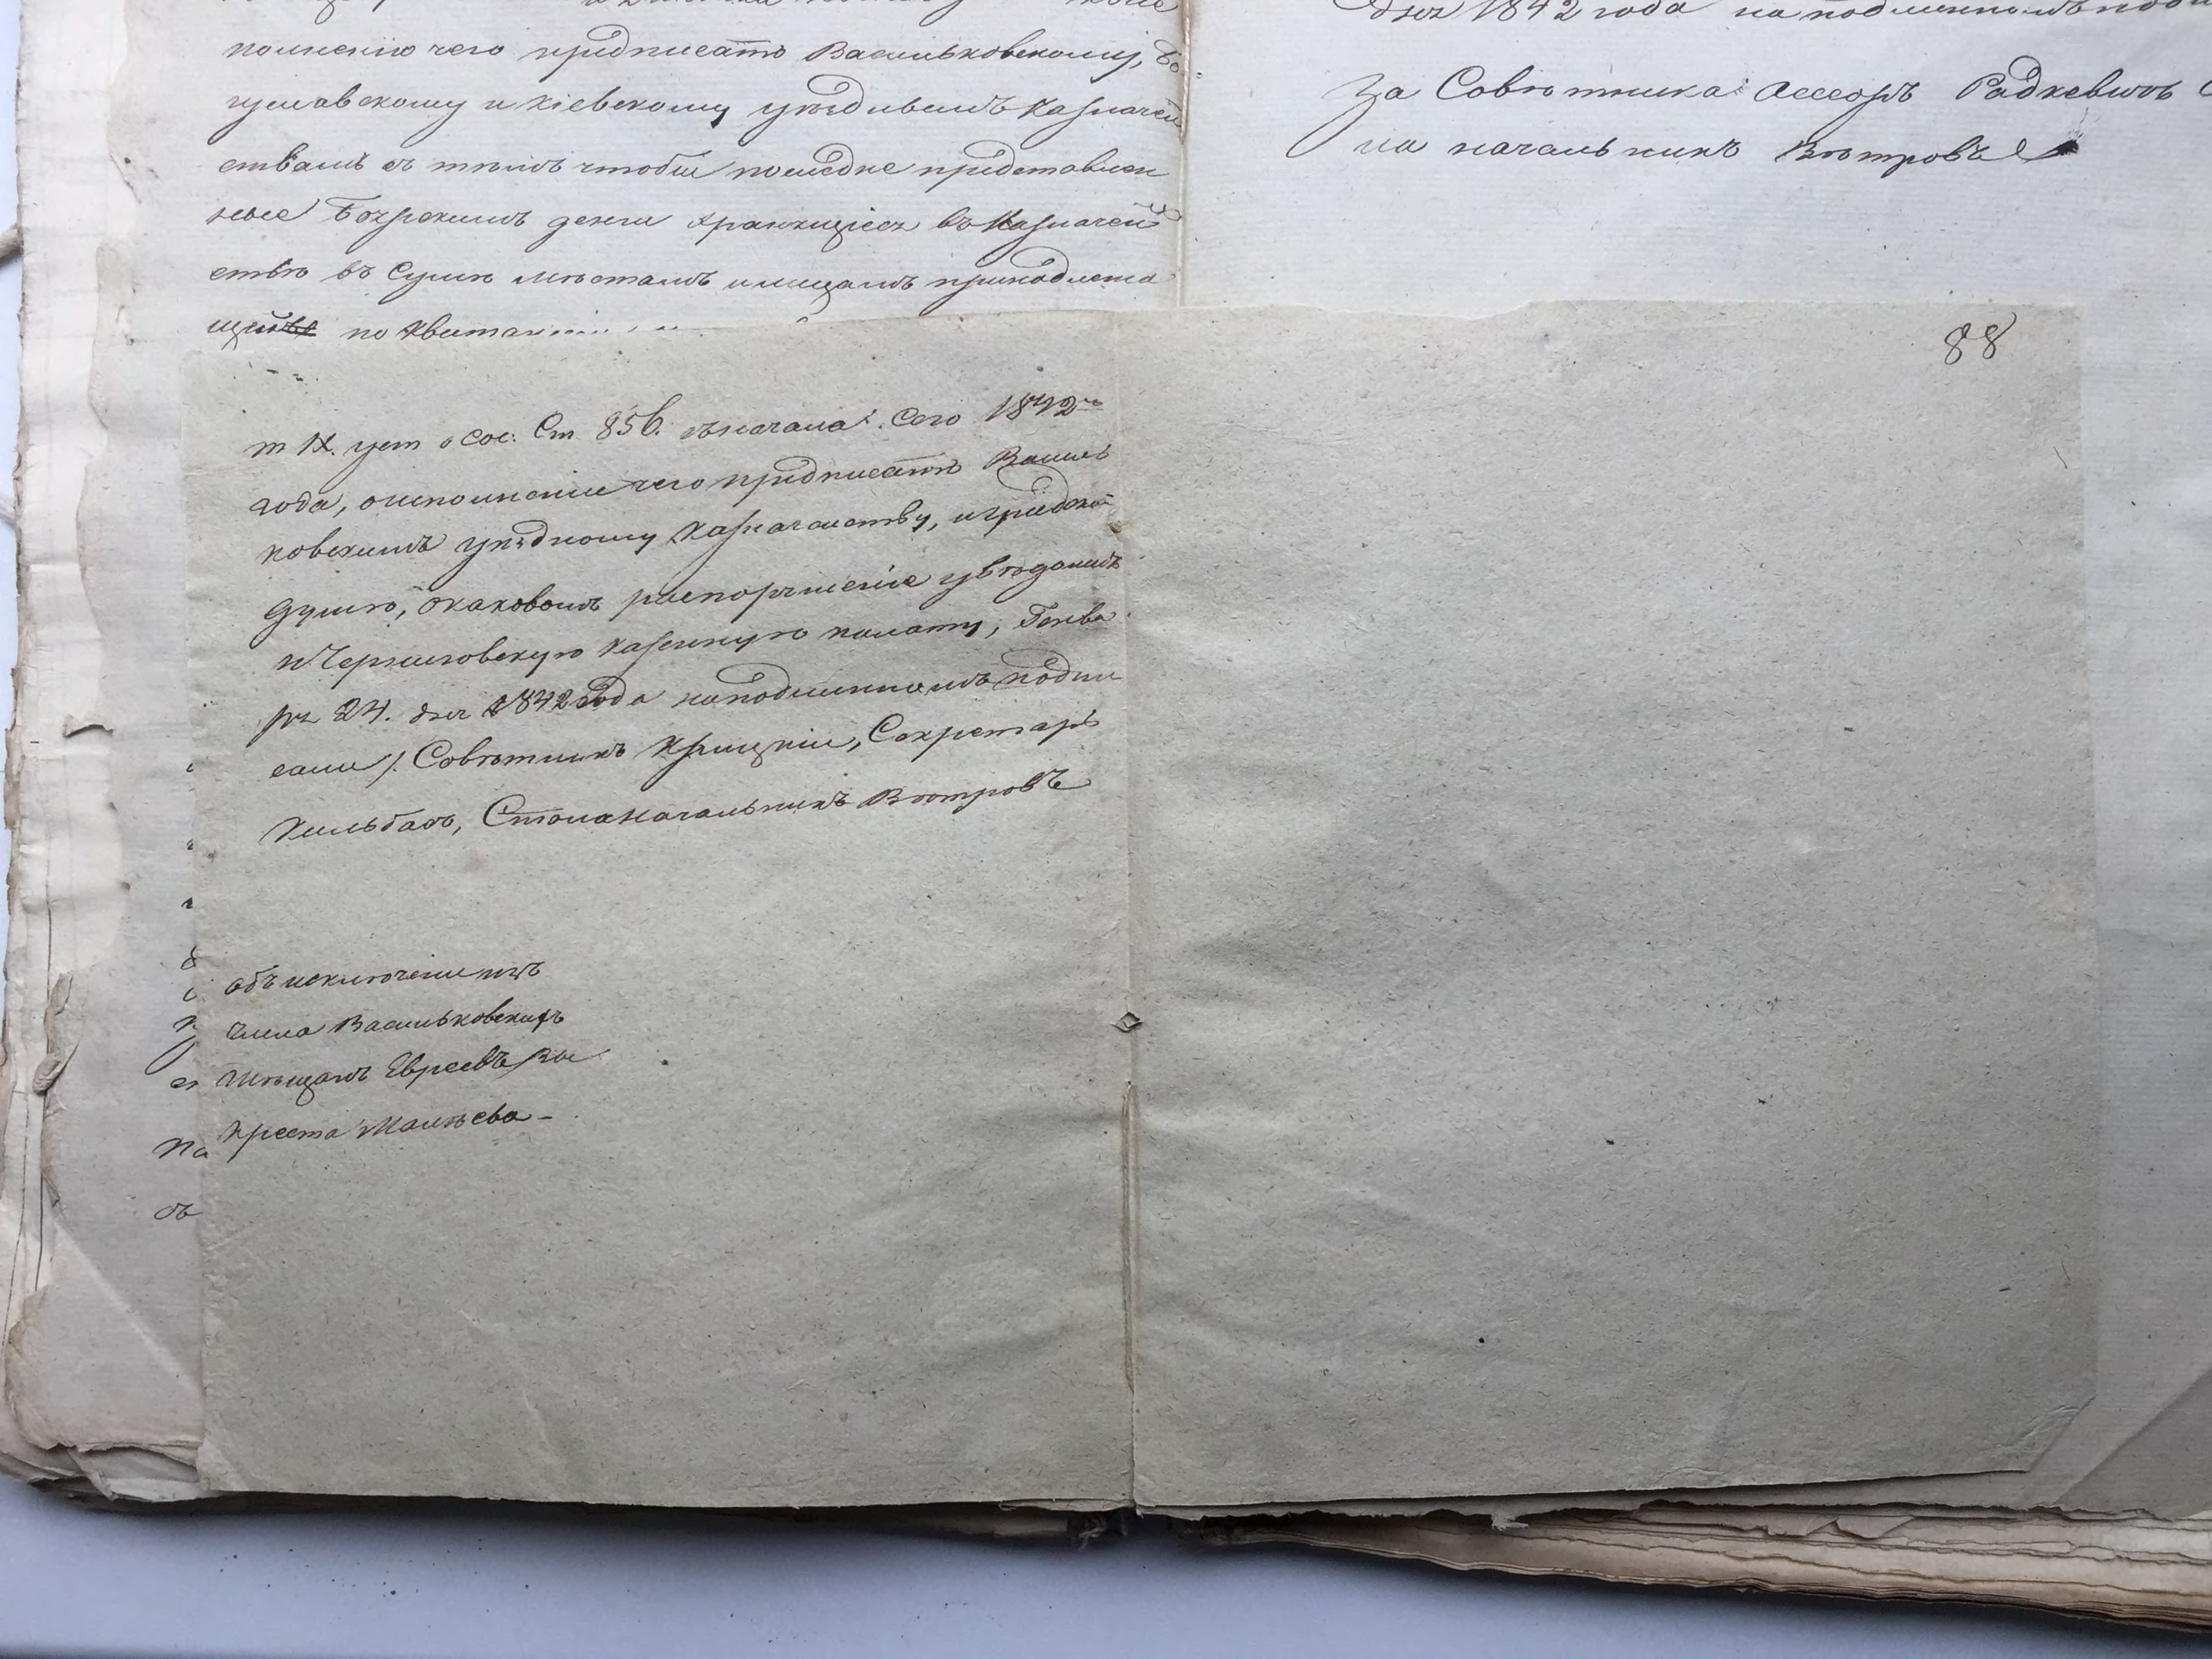 полненію чего предписать Васильковскому, Бо
гуславскому и Кіевскому уѣзднымъ Казначей
ствамъ съ тѣмъ чтобы последнее представлен
ные деньги хранящіеся въ Казначей
ствѣ въ Сумѣ мѣстамъ и лицамъ принадлежа
щихъ по
дня 1842 года на подлинномъ
За Совѣтника: Асесоръ Радкевичь С
на начальникъ Вѣтровъ
88
т IX. уст о сос: Ст 856. съ начала сего 1842го
года, о исполненіи чего предписать Василь
ковскимъ уѣздному Казначейству, и градской
думѣ, о каковомъ распоряженіе увѣдомить
и Черниговскую казенную палату, Генва
ря 24. дня 1842 года на подлинномъ подпи
сали /: Совѣтникъ Крицкій, Секретарь
Кильбахъ, Столаначальникъ Вѣтровъ
Объ исключеніи изъ
числа Васильковскихъ
Мѣщанъ Евреевъ Вы
креста Малѣева -
на
съ